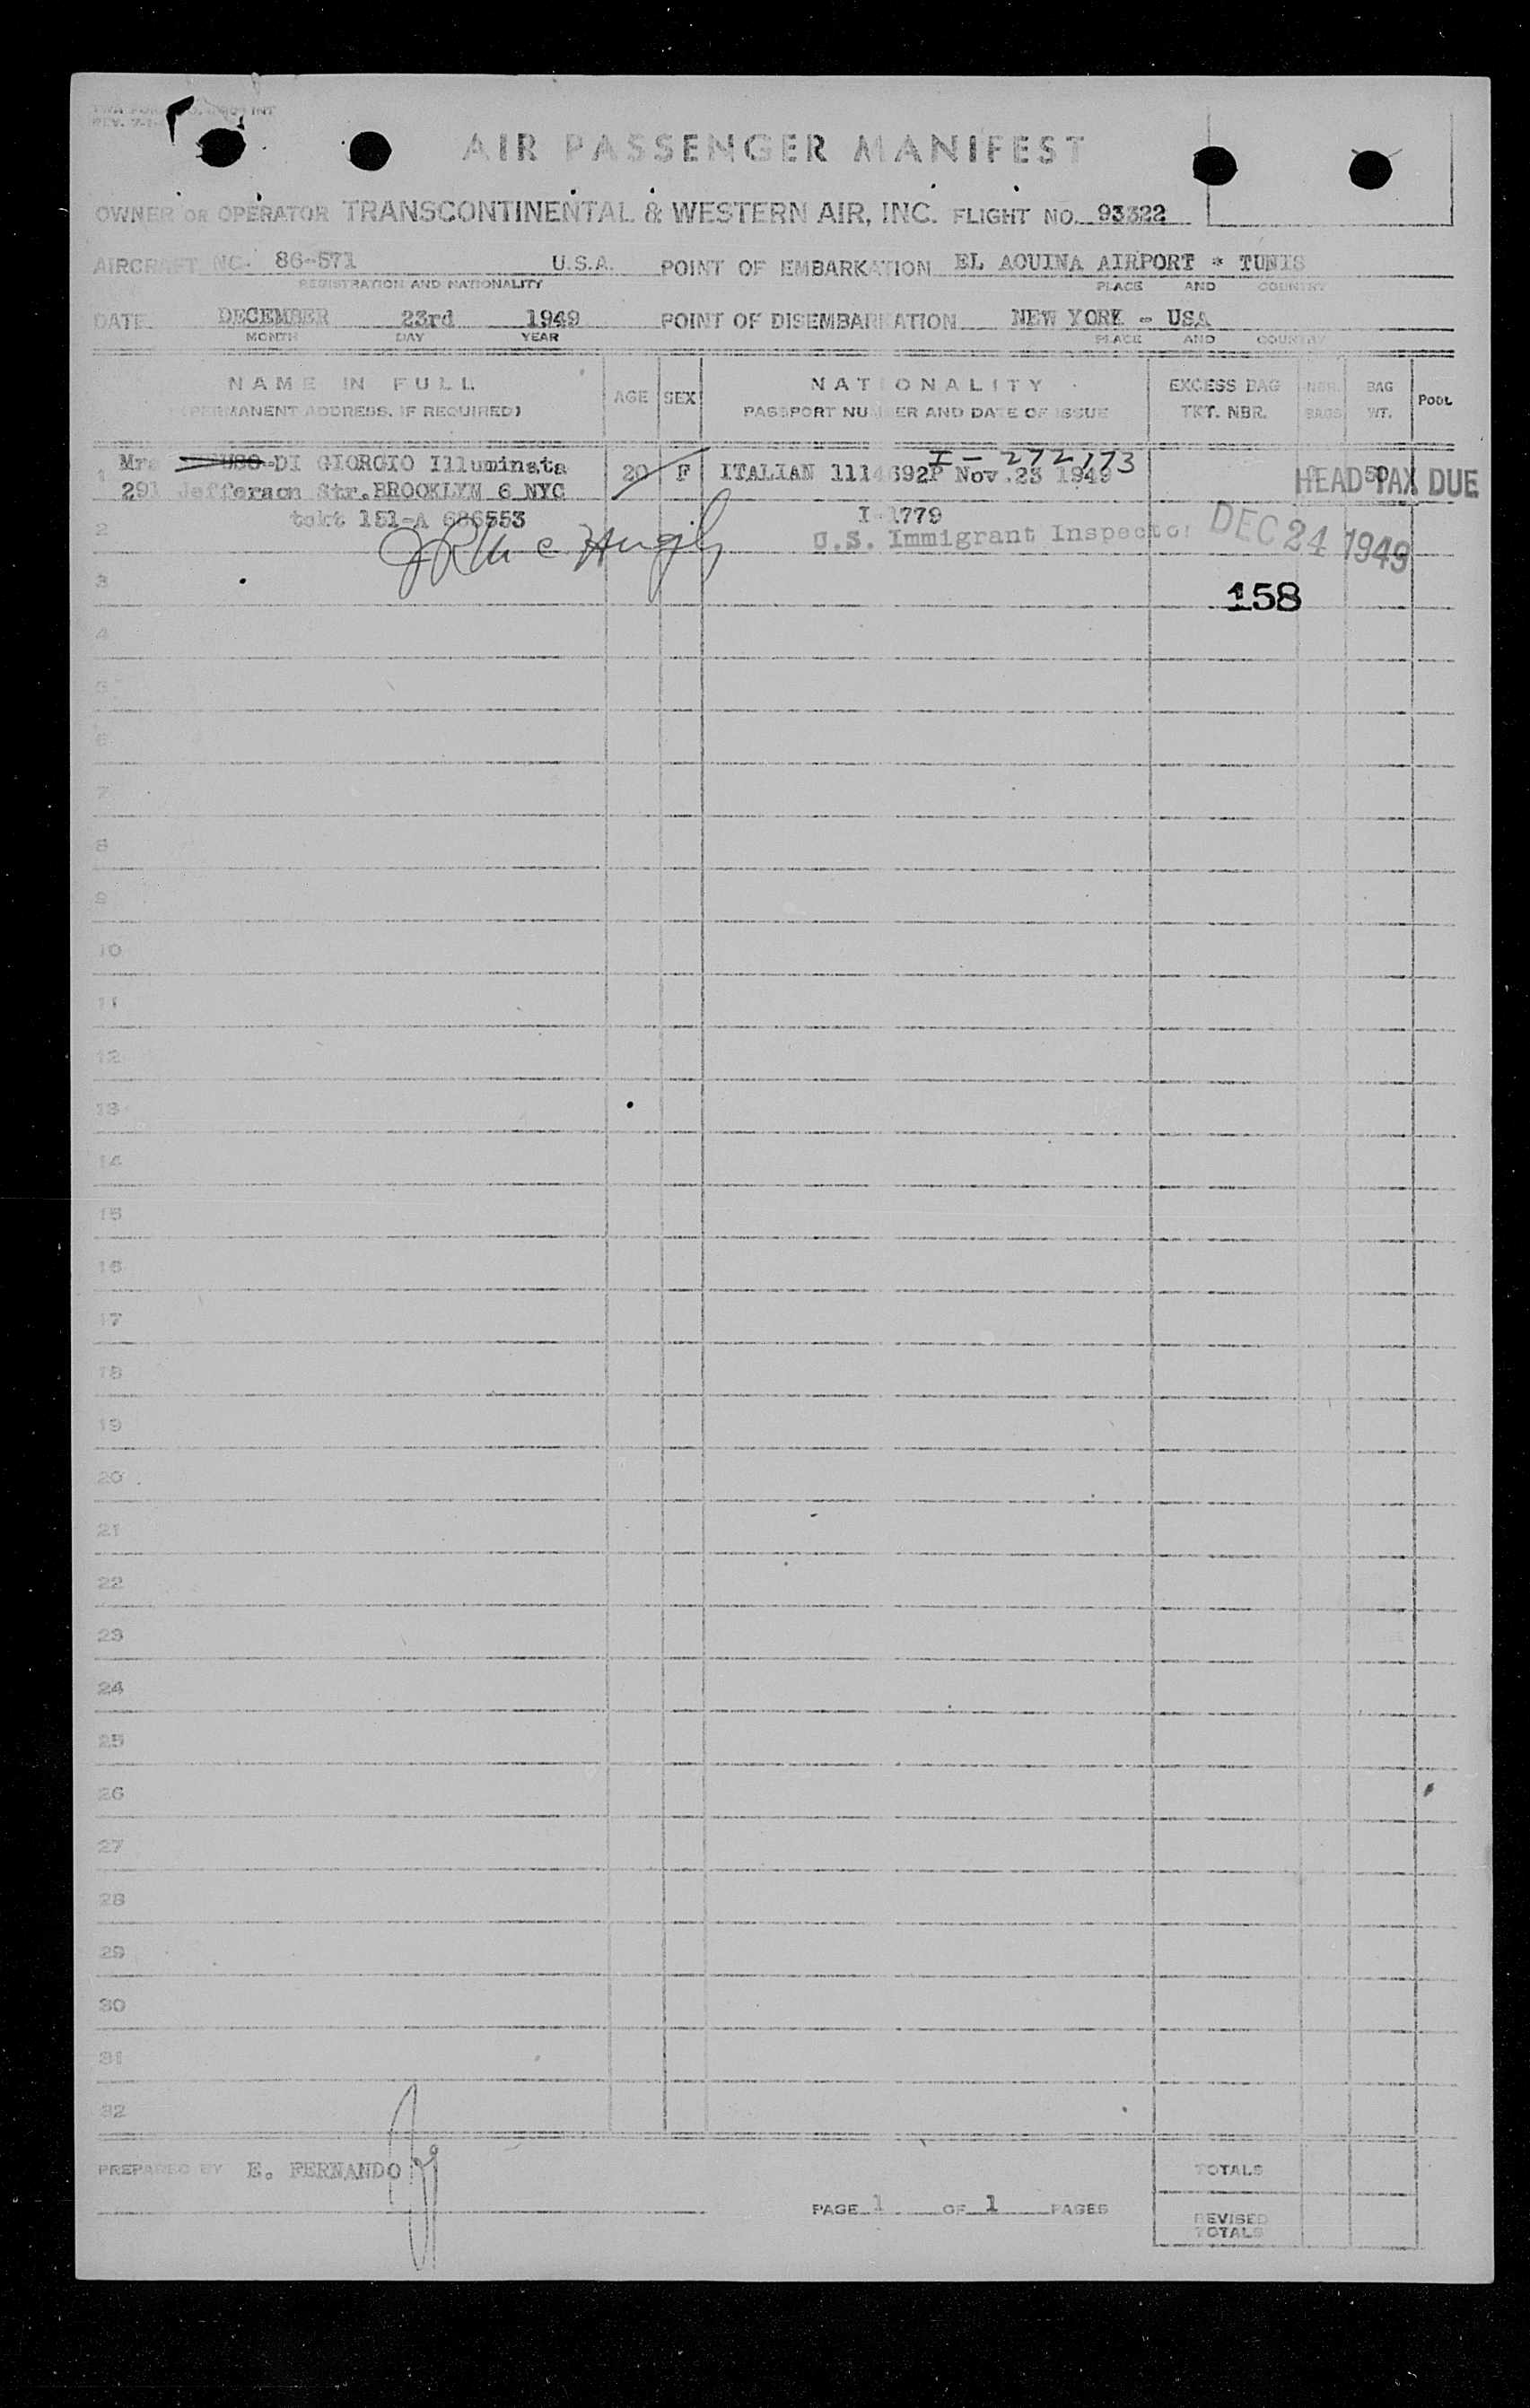 AIR PASSENGER MANIFEST
OWNER OR OPERATOR TRANSCONTINENTAL & WESTERN AIR, INC. FLIGHT NO. 93322
AIRCRAFT NC- 86-571 U.S.A. POINT OF EMBARKATION EL AOUINA AIRPORT * TUNIS
REGISTRATION AND NATIONALITY PLACE AND COUNTRY
DATE DECEMBER 23rd 1949 POINT OF DISEMBARKATION NEW YORK - USA
MONTH DAY YEAR PLACE AND COUNTRY
NAME IN FULL AGE SEX NATIONALITY EXCESS BAG NBR. BAG POOL
(PERMANENT ADDRESS, IF REQUIRED) PASSPORT NUMBER AND DATE OF ISSUE TKT. NBR. BAGS WT.
I-272173
1 Mrs DI GIORGIO Illuminata 20 F ITALIAN 1114692P Nov.23 1949 HEAD TAX DUE
291 Jefferson Str.BROOKLYN 6 NYC
tckt 151-A 686553 I-1779
2 U.S. Immigrant Inspector DEC 24 1949
3 158
4
5
6
7
8
9
10
11
12
13
14
15
16
17
18
19
20
21
22
23
24
25
26
27
28
29
30
31
32
PREPARED BY E. FERNANDO TOTALS
PAGE 1 OF 1 PAGES REVISED
TOTALS